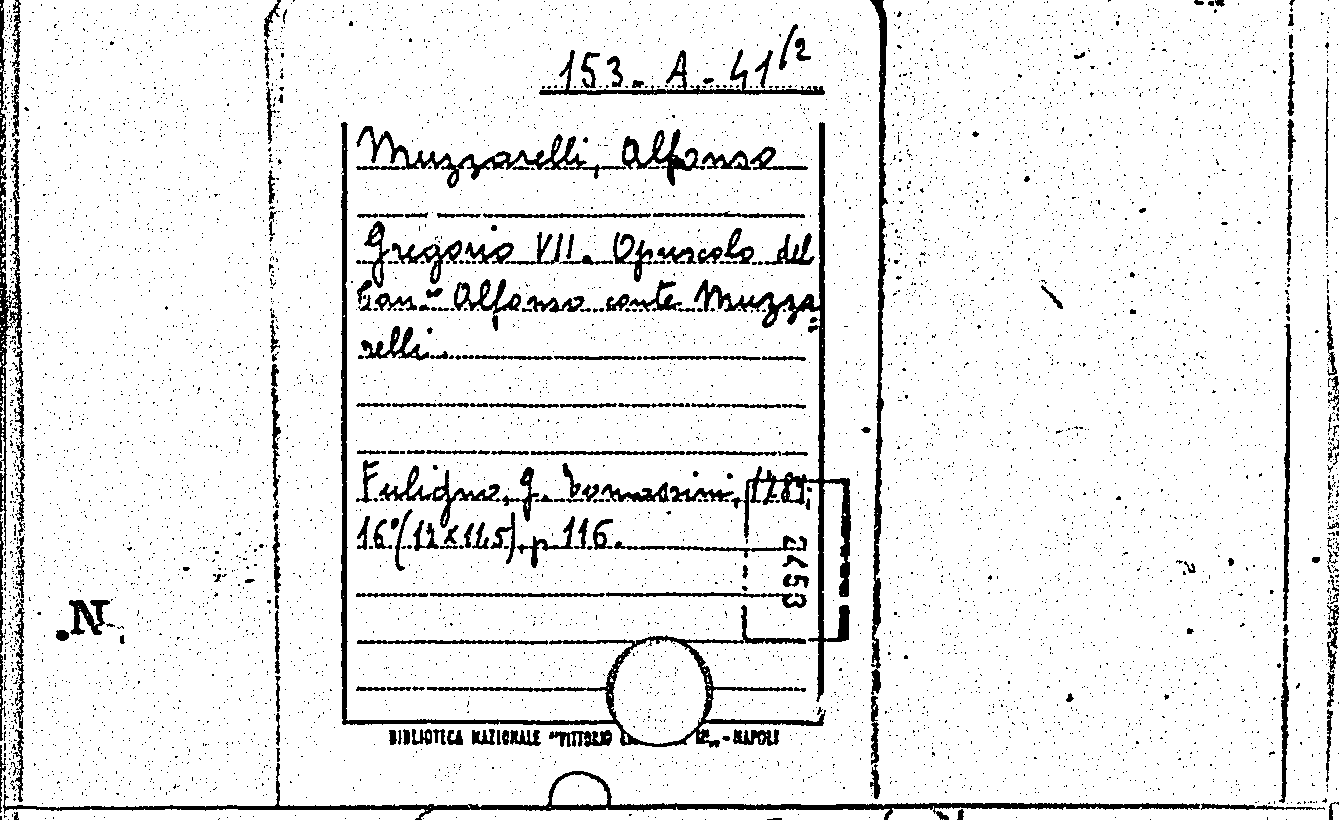 153. A. 41/2
Muzzarelli, Alfonso
Gregorio VII. Opuscolo del
Can.co Alfonso conte Muzza=
relli.
Fuligno, G. Tomassini,
16°( p. 116.
2453
.N
BIBLIOTECA NAZIONALE "VITTORIO - NAPOLI